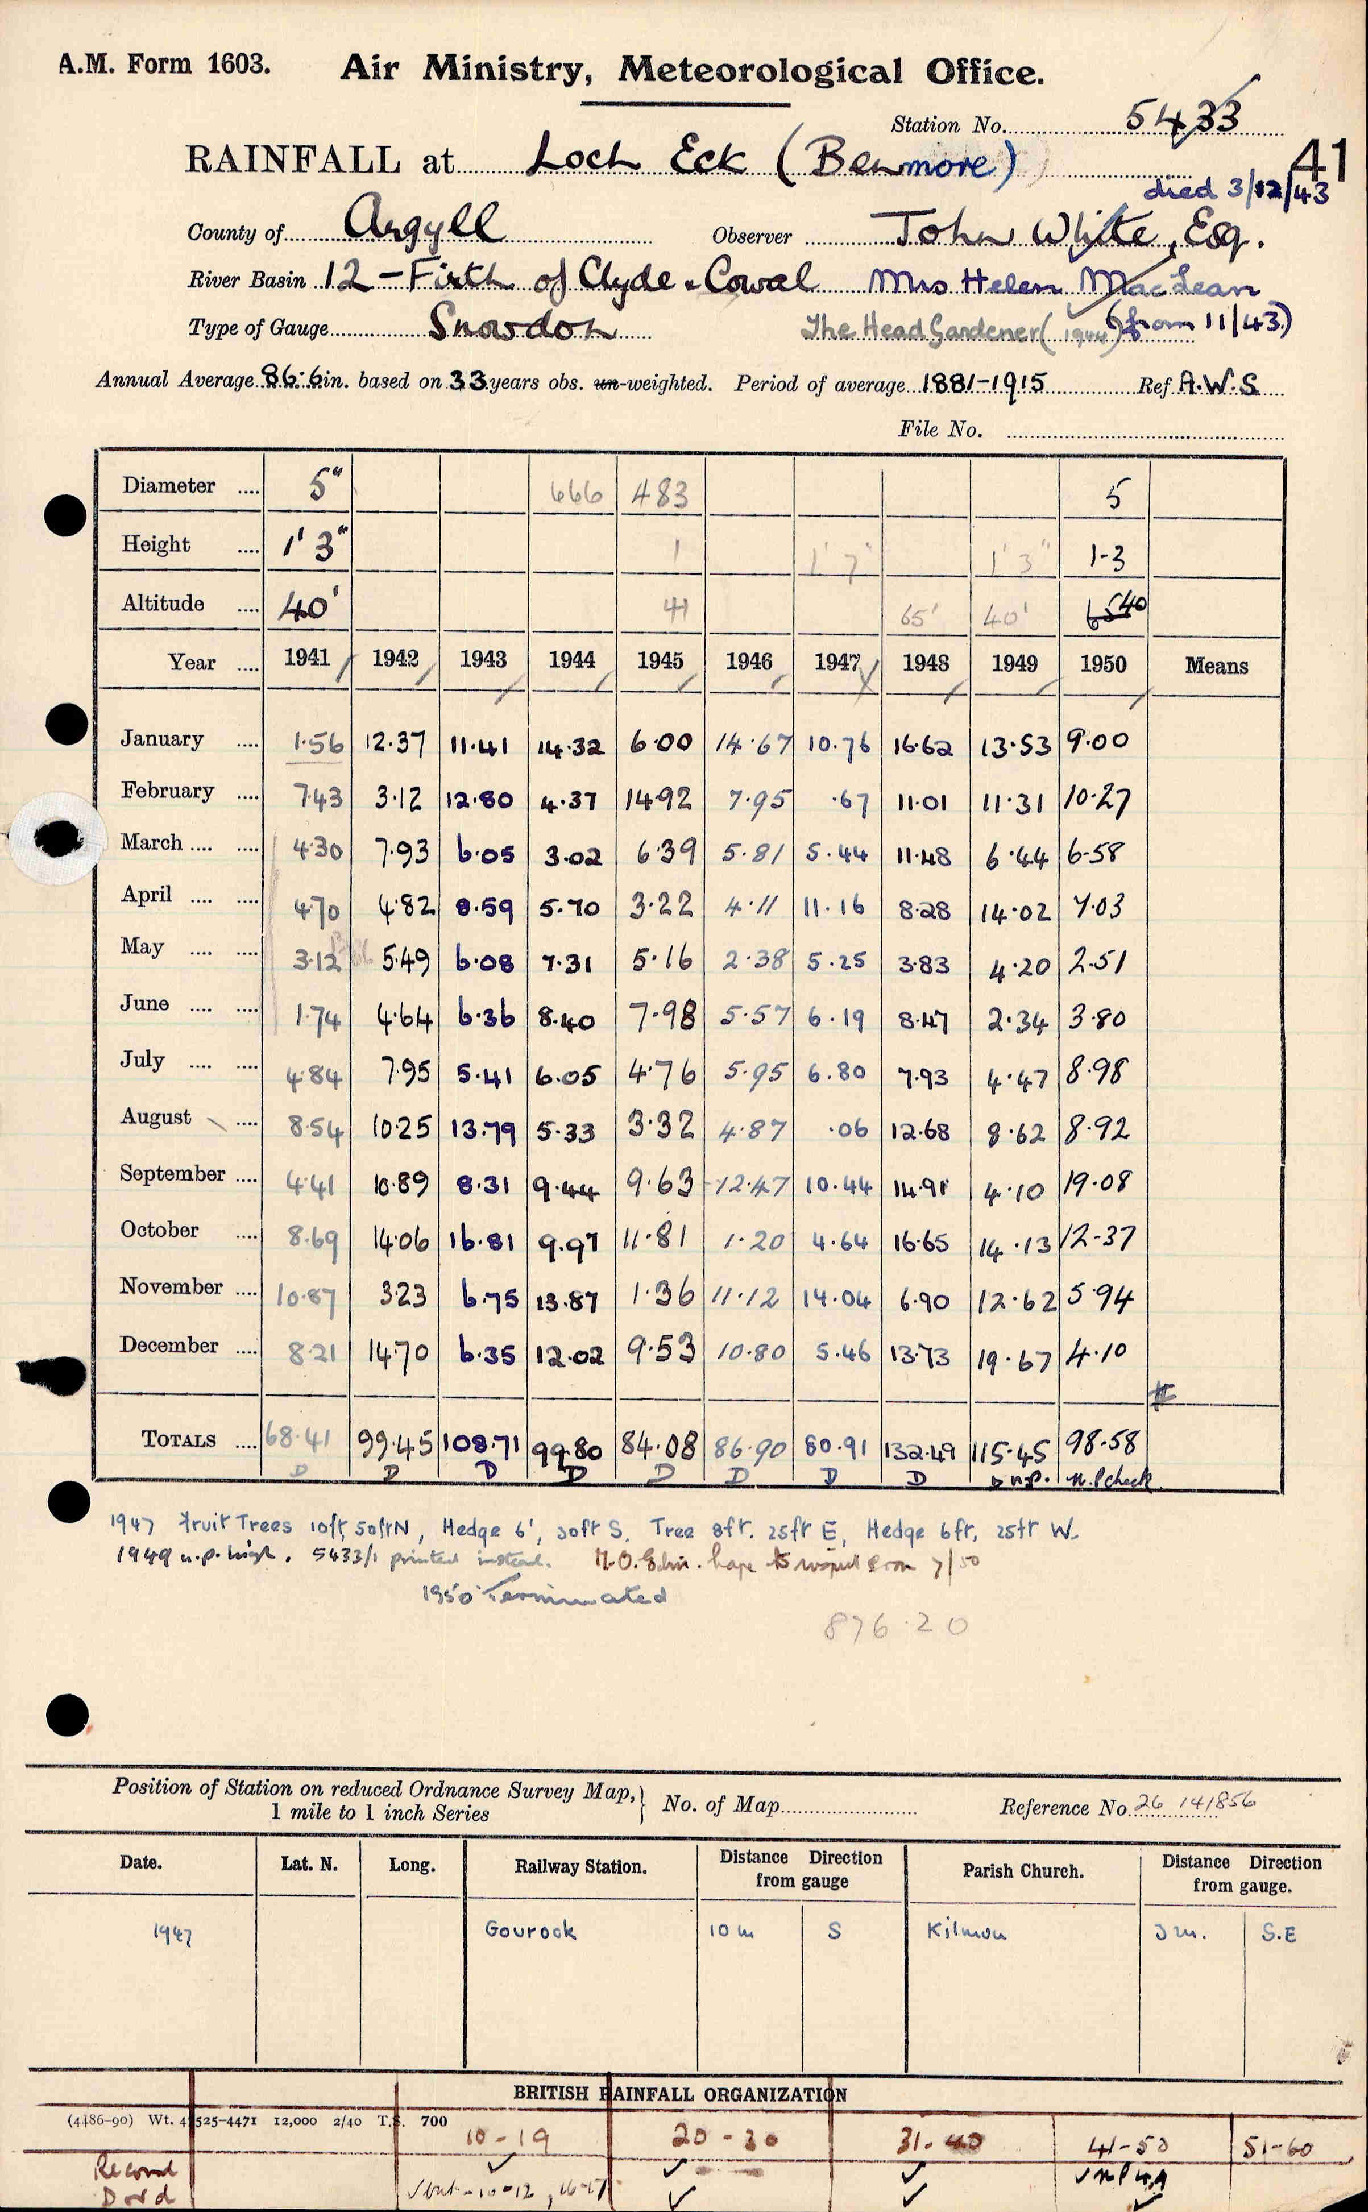 A.M. Form 1603. Air Ministry, Meteorological Office.
Station No. 5433
41
RAINFALL at Loch Eck (Benmore)
died 3/12/43
County of Argyll Observer John White, Esq.
River Basin 12 - Firth of Clyde & Cowal Mrs Helen MacLean
Type of Gauge Snowdon The Head Gardener (1944) (from 11/43)
Annual Average 86.6 in. based on 33 years obs. un-weighted. Period of average 1881-1915 Ref A.W.S
File No.
Diameter .... 5" 666 483 5
Height .... 1' 3" 1 1' 7" 1' 3" 1-3
Altitude .... 40' 41 65' 40' 65 40
Year .... 1941 1942 1943 1944 1945 1946 1947 1948 1949 1950 Means
January .... 1.56 12.37 11.41 14.32 6.00 14.67 10.76 16.62 13.53 9.00
February .... 7.43 3.12 12.80 4.37 14.92 7.95 .67 11.01 11.31 10.27
March .... .... 4.30 7.93 6.05 3.02 6.39 5.81 5.44 11.48 6.44 6.58
April .... .... 4.70 4.82 8.59 5.70 3.22 4.11 11.16 8.28 14.02 7.03
May .... .... 3.12 5.49 6.08 7.31 5.16 2.38 5.25 3.83 4.20 2.51
June .... .... 1.74 4.64 6.36 8.40 7.98 5.57 6.19 8.47 2.34 3.80
July .... .... 4.84 7.95 5.41 6.05 4.76 5.95 6.80 7.93 4.47 8.98
August .... 8.54 10.25 13.79 5.33 3.32 4.87 .06 12.68 8.62 8.92
September .... 4.41 10.89 8.31 9.44 9.63 12.47 10.44 14.91 4.10 19.08
October .... 8.69 14.06 16.81 9.97 11.81 1.20 4.64 16.65 14.13 12.37
November .... 10.87 3.23 6.75 13.87 1.36 11.12 14.04 6.90 12.62 5.94
December .... 8.21 14.70 6.35 12.02 9.53 10.80 5.46 13.73 19.67 4.10
TOTALS .... 68.41 99.45 108.71 99.80 84.08 86.90 80.91 132.49 115.45 98.58
D D D D D D D D D n.p. n.P check
1947 Fruit Trees 10ft, 50ft N, Hedge 6', 30ft S, Tree 8ft. 25ft E, Hedge 6ft, 25ft W.
1949 n.p. high. 5433/1 printed instead. M.O. Edin. hope to inspect soon 7/50
1950 Terminated
876.20
Position of Station on reduced Ordnance Survey Map,
1 mile to 1 inch Series
No. of Map Reference No 26 141856
Date. Lat. N. Long. Railway Station. Distance Direction from gauge Parish Church. Distance Direction from gauge.
1947 Gourock 10 m S Kilmun 3 m. S.E
BRITISH RAINFALL ORGANIZATION
(4486-90) Wt. 41525-4471 12,000 2/40 T.S. 700
10-19 20-30 31-40 41-50 51-60
Record